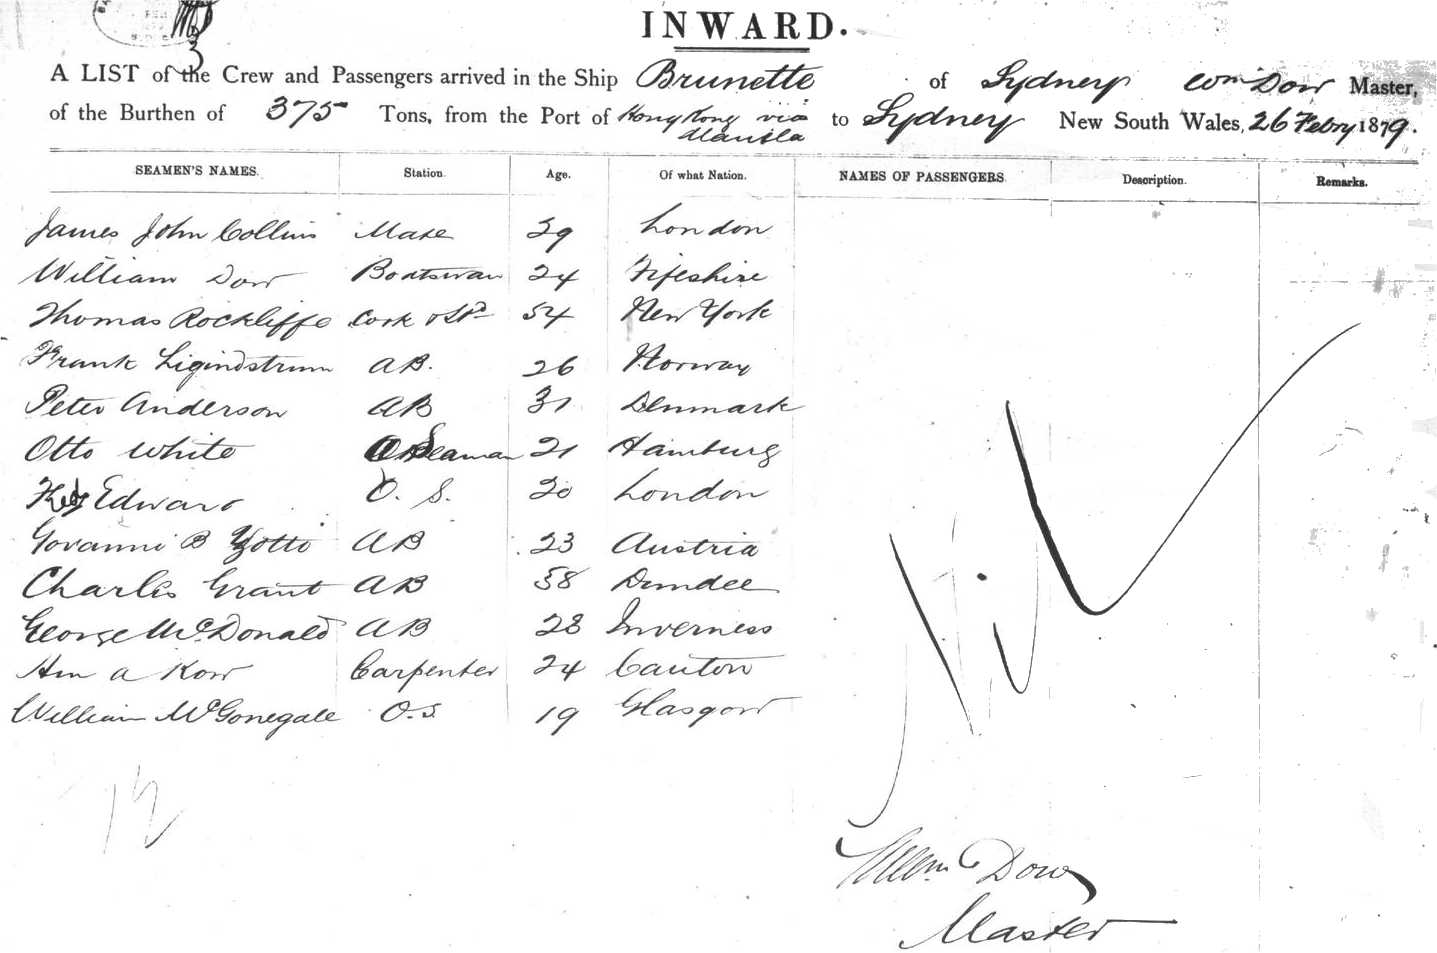 INWARD.
A LIST of the Crew and Passengers arrived in the Ship Brunette of Sydney Wm Dow Master,
of the Burthen of 375 Tons, from the Port of Hong Kong via Manila to Sydney New South Wales, 26 Febry 1879.
SEAMEN'S NAMES. Station. Age. Of what Nation. NAMES OF PASSENGERS. Description. Remarks.
James John Collins Mate 39 London
William Dow Boatswan 24 Fifeshire
Thomas Rockliffe Cook & Std 54 New York
Frank Ligindstrum AB. 26 Norway
Peter Anderson AB 31 Denmark
Otto White Seaman 21 Hamburg
Edward O. S. 20 London
Govanni B Zotti AB 23 Austria
Charles Grant AB 58 Dundee
George McDonald AB 28 Inverness
Ah a Kow Carpenter 24 Canton
William McGonegale O.S 19 Glasgow
Nil
12
Willm Dow
Master